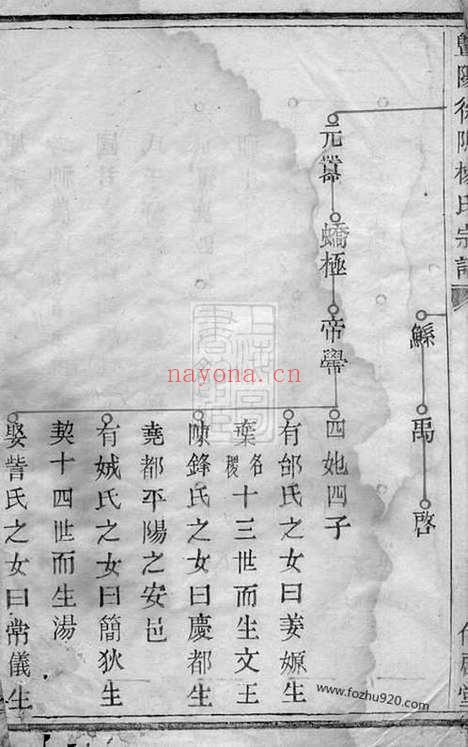 暨陽徐陳楊氏宗譜
鯀
禹
啓
元囂
蟜極
帝嚳
四妣四子
有邰氏之女曰姜嫄生
棄名稷十三世而生文王
陳鋒氏之女曰慶都生
堯都平陽之安邑
有娀氏之女曰簡狄生
契十四世而生湯
娶訾氏之女曰常儀生
nayona.cn
www.fozhu920.com